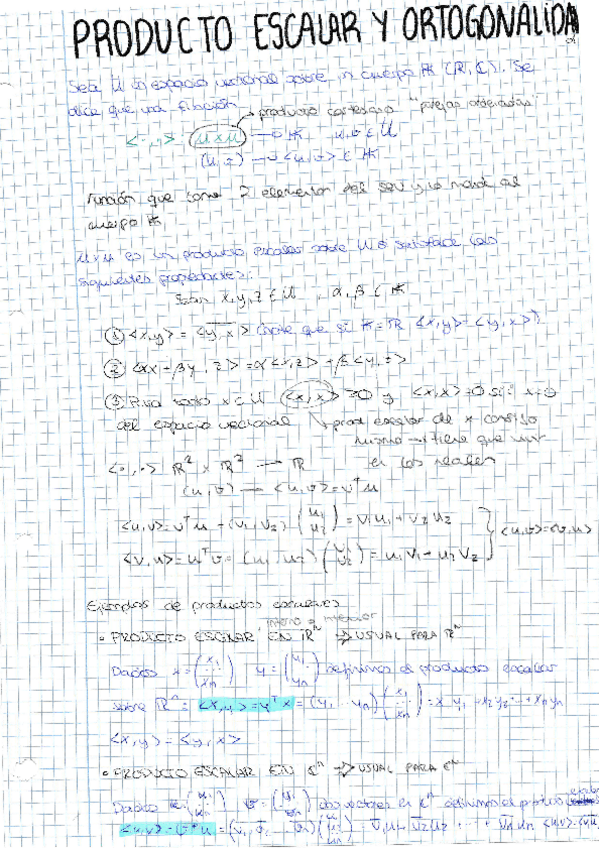 PRODUCTO ESCALAR Y ORTOGONALIDAD
Sea U un espacio vecional sobre un cuerpo K (R, C). Se
dice que una función
→ producto cartesiano "parejas ordenadas"
<·,·> U×U → K u,v ∈ U
(u,v) → <u,v> ∈ K
Función que toma 2 elementos del y lo manda al
cuerpo K
U×U es un producto escalar sobre U si satisface las
siguientes propiedades:
Sean x,y,z ∈ U , α,β ∈ K
① <x,y> = <y,x> que si K=R <x,y>=<y,x>
② <αx+βy,z> = α<x,z>+β<y,z>
③ Para todo x ∈ U <x,x> ≥0 y <x,x>=0 si x=0
del espacio vecional ↳ prod escalar de x consigo
mismo → tiene que
en los reales
<·,·> R² × R² → R
(u,v) → <u,v>=vᵀu
<u,v>=vᵀu=(v₁,v₂)(u₁ u₂)=v₁u₁+v₂u₂
<v,u>=uᵀv=(u₁,u₂)(v₁ v₂)=u₁v₁+u₂v₂ } <u,v>=<v,u>
Ejemplos de productos escalares
interno o interior
• PRODUCTO ESCALAR EN Rⁿ → USUAL PARA Rⁿ
Dados x=(x₁ ⋮ xₙ) y=(y₁ ⋮ yₙ) definimos el producto escalar
sobre Rⁿ: <x,y>=yᵀx=(y₁ ... yₙ)(x₁ ⋮ xₙ)=x₁y₁+x₂y₂+...+xₙyₙ
<x,y>=<y,x>
• PRODUCTO ESCALAR EN Cⁿ → USUAL PARA Cⁿ
Dados dos vectores en Cⁿ definimos el producto